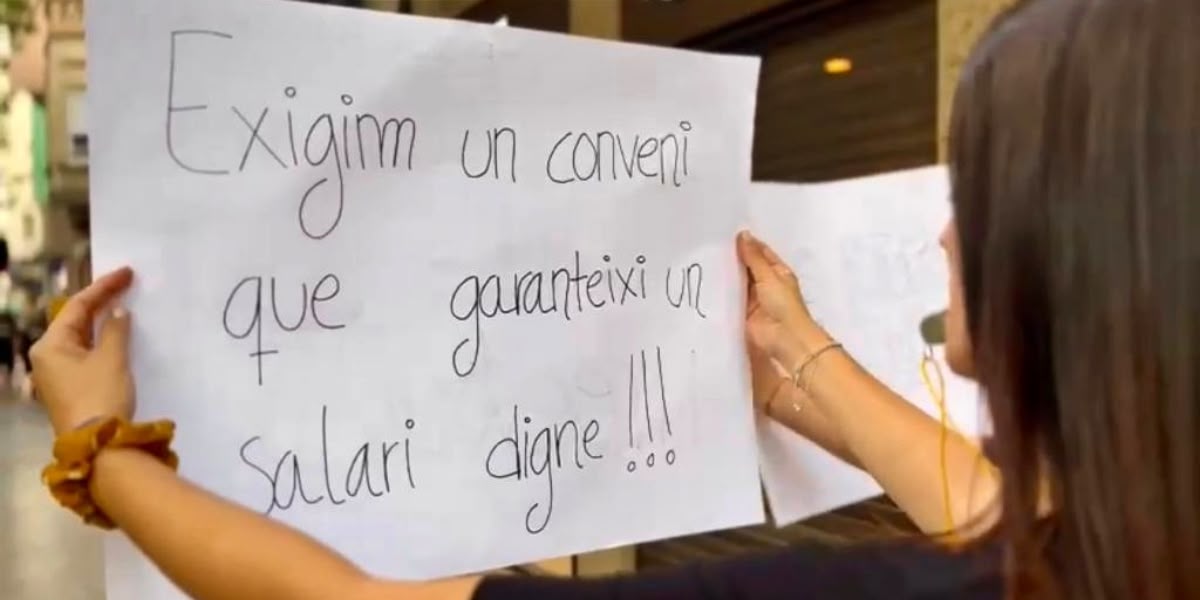 Exigim un conveni
que garanteixi un
salari digne!!!